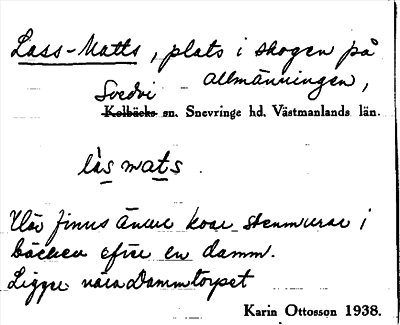 Lass-Matts, plats i skogen på
allmänningen,
Svedvi
Kolbäcks sn. Snevringe hd. Västmanlands län.
làs mats.
Här finns ännu kvar stenmurar i
bäcken efter en damm.
Ligger nära Dammtorpet
Karin Ottosson 1938.